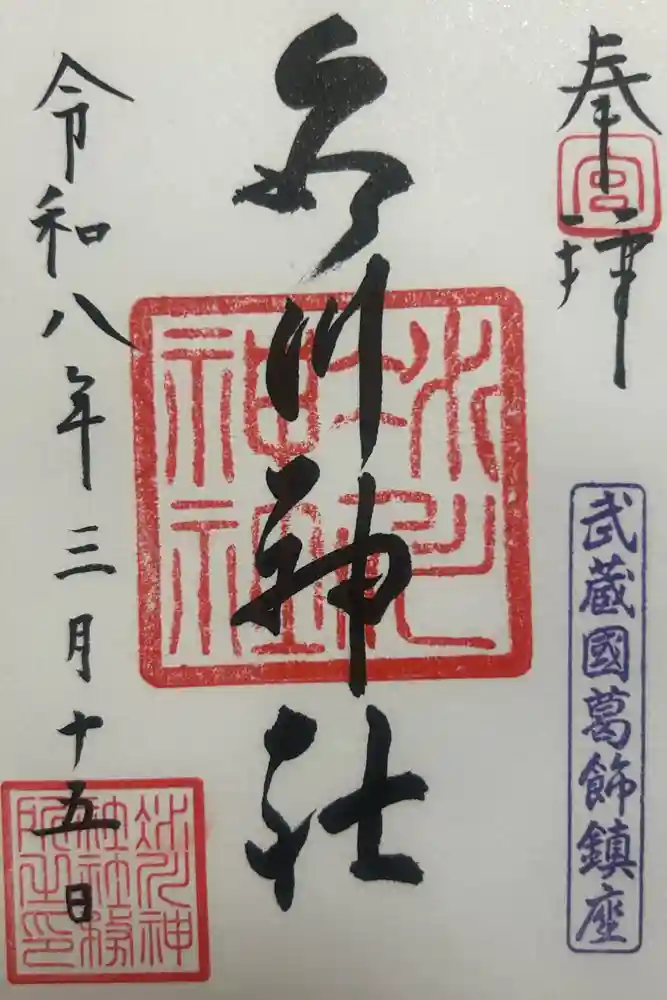 奉拝
宮
武蔵國葛飾鎮座
氷川神社
令和八年三月十五日
氷川神
社社務
所之印